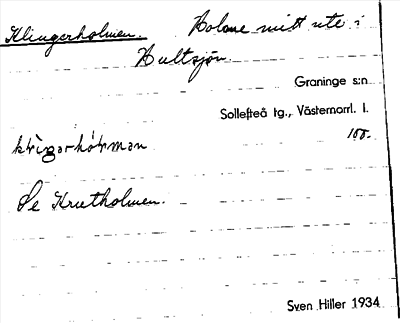 Klingerholmen. Holme mitt ute i
Hultsjön.
Graninge s:n
Sollefteå tg., Västernorrl. l.
100.
Se Krutholmen.
Sven Hiller 1934